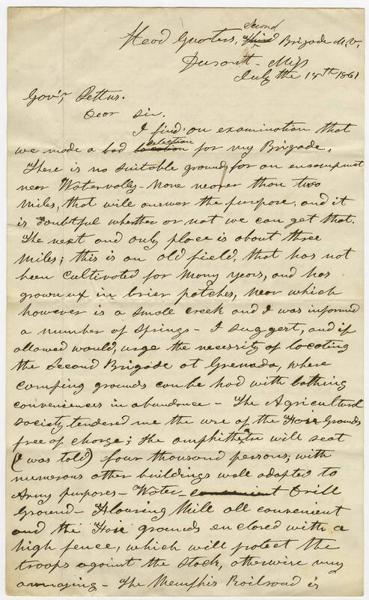 Head Quarters, Second Brigade M.V.
Durant Miss
July the 18th 1861
Gov.r Pettus.
Dear Sir.
I find on examination that
we made a bad selection for my Brigade.
There is no suitable ground for an encampment
near Watervalley - None nearer than two
miles, that will answer the purpose, and it
is doubtful whether or not we can get that.
The next and only place is about three
miles; this is an old field, that has not
been cultivated for many years, and has
grown up in brier patches, near which
however is a small creek and I was informed
a number of springs - I suggest, and if
allowed would, urge the necessity of locating
the Second Brigade at Grenada, where
camping grounds can be had with bathing
conveniences in abundance - The Agricultural
society, tendered me the use of the Fair Grounds
free of charge; the amphitheter will seat
(I was told) four thousand persons, with
numerous other buildings well adapted to
Army purposes - Water Drill
Ground - Flouring Mill all convenient
and the Fair grounds enclosed with a
high fence, which will protect the
troops against the stock, otherwise very
annoying - The Memphis Railroad is